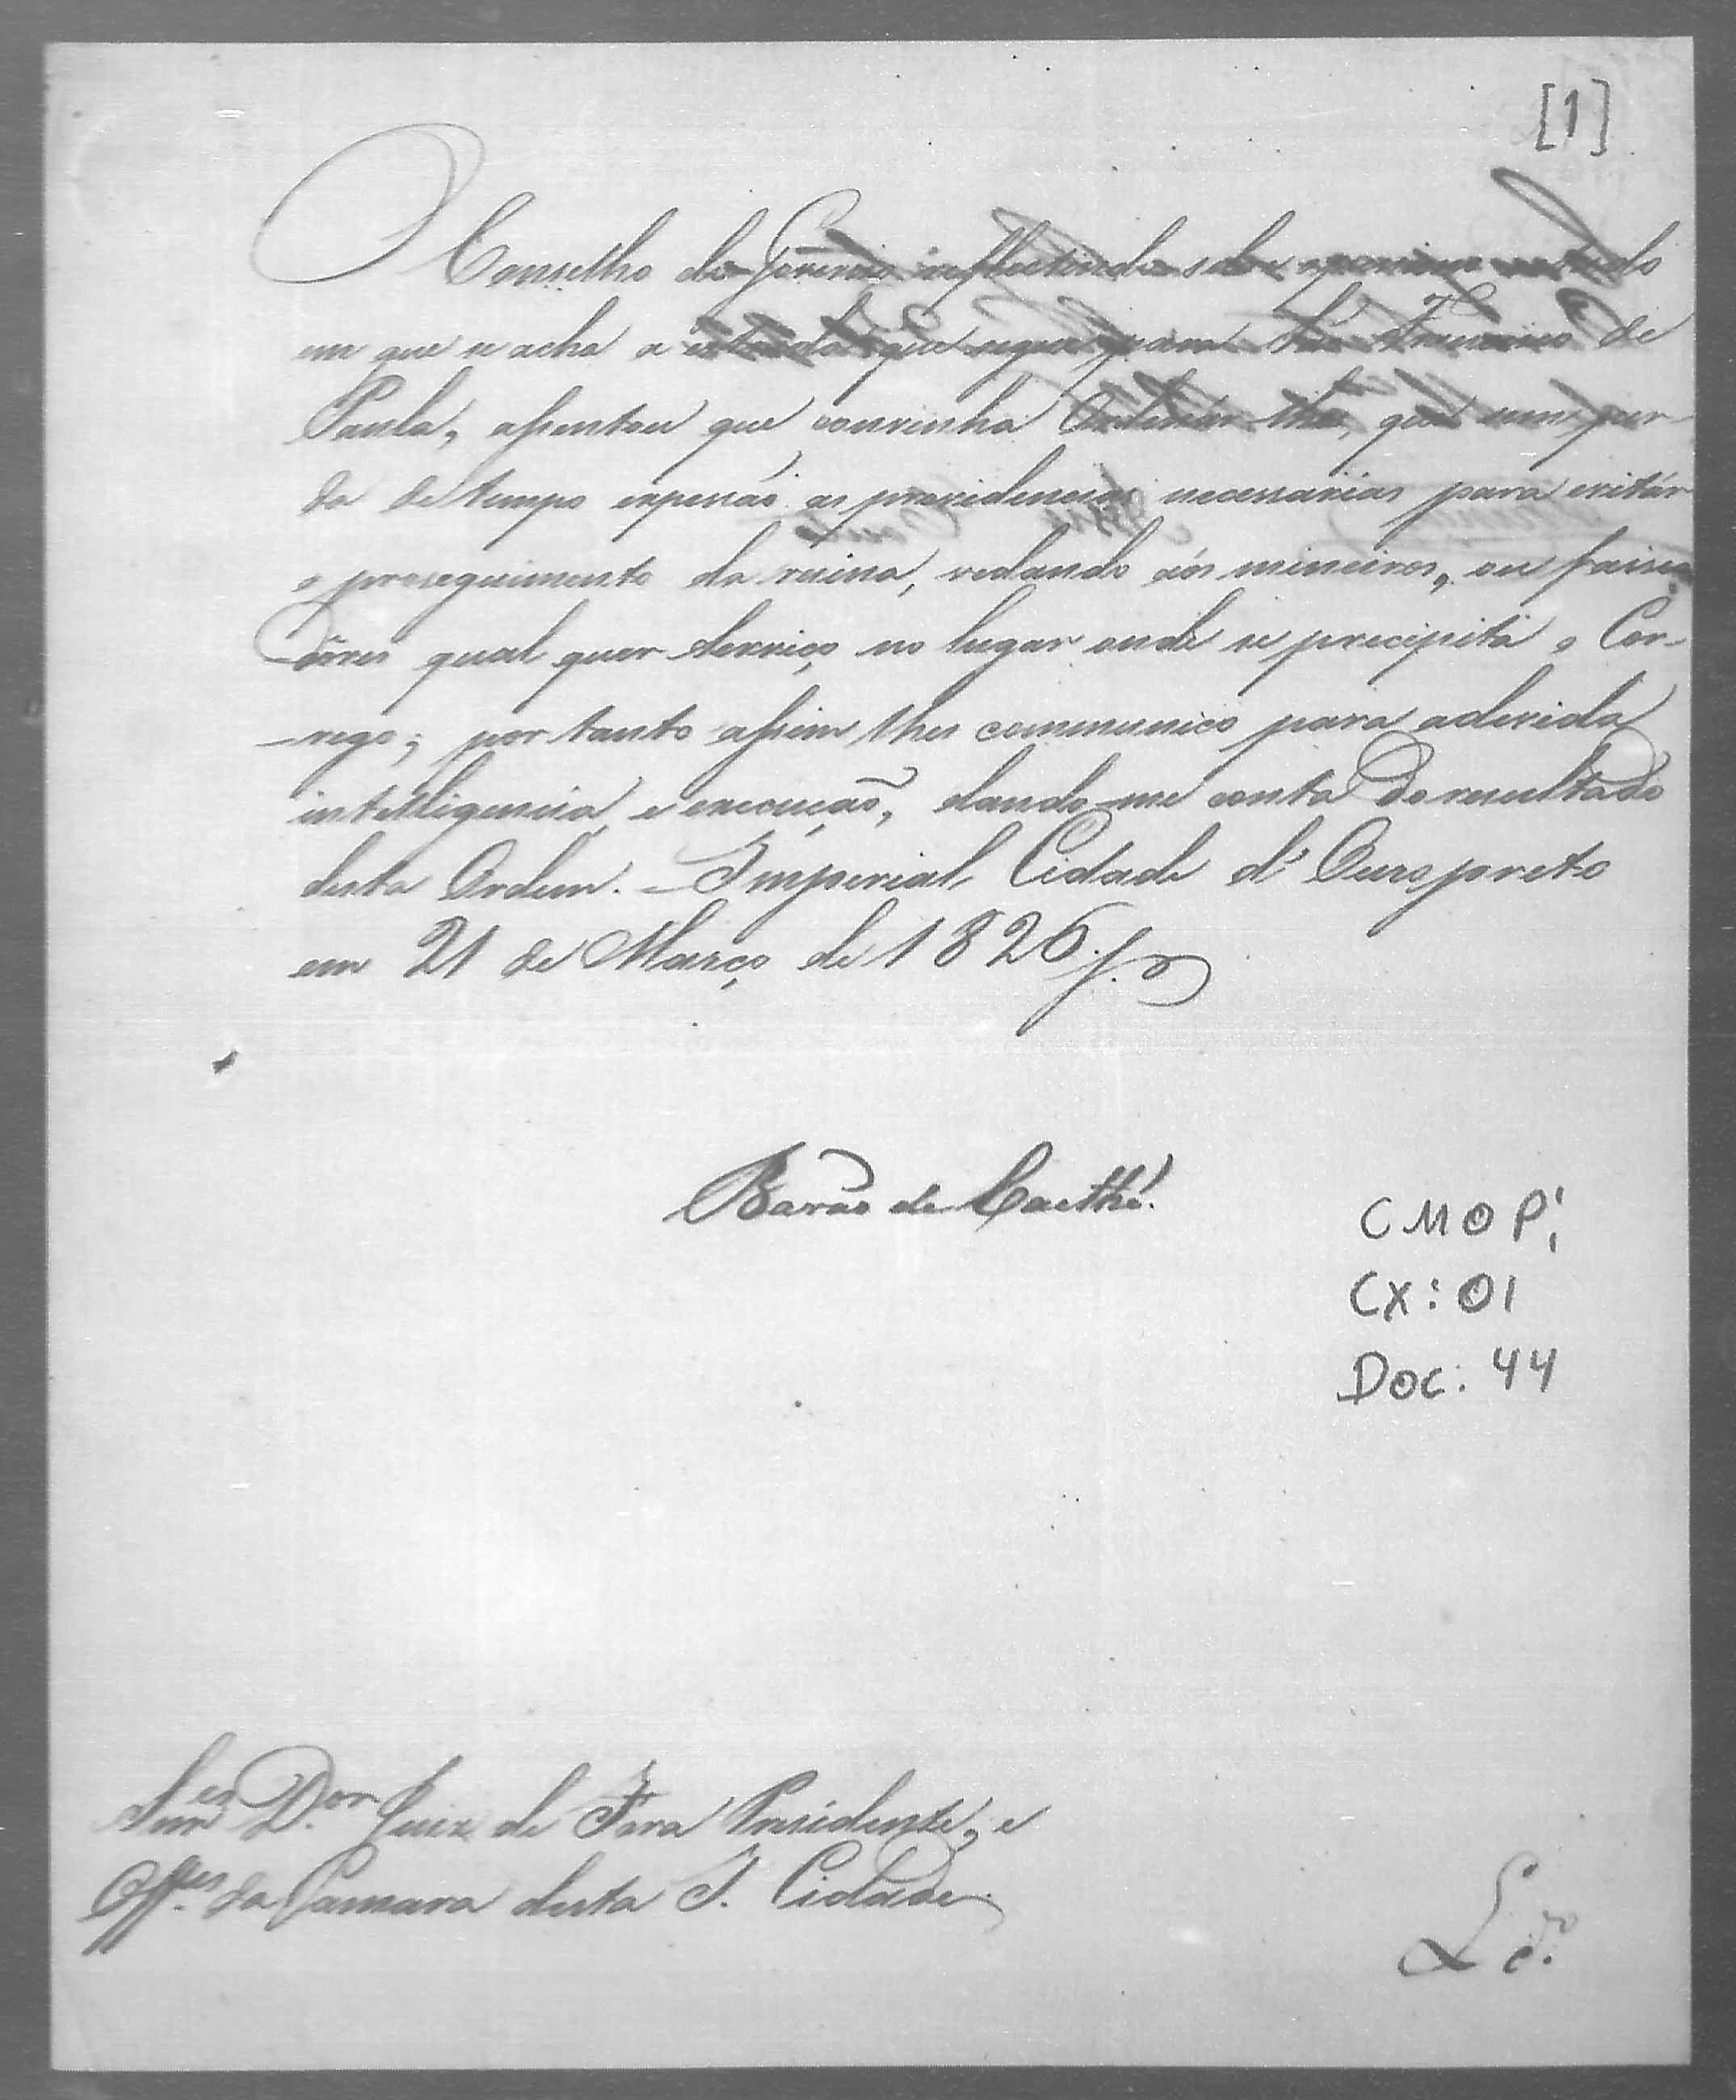 [1]
O Conselho do Governo reflectindo sobre o perigozo estado
em que se acha a estrada que segue para São Francisco de
Paula, assentou que convinha Ordenar-lhes, que sem per-
da de tempo expessão as providencias necessarias para evitár
o proseguimento da ruina, vedando aós mineiros, ou faisca
dôres qual quer Serviço no lugar onde se precipitá o Cor-
rego; por tanto assim lhes communico para adevida
intelligencia, e execução, dando-me conta do resultado
desta Ordem. Imperial Cidade d'Ouropreto
em 21 de Março de 1826.
Barão de Caethé.
CMOP:
CX: 01
DOC: 44
Snr.es D.or Juiz de Fora Presidente, e
Off.es da Camara desta I. Cidade